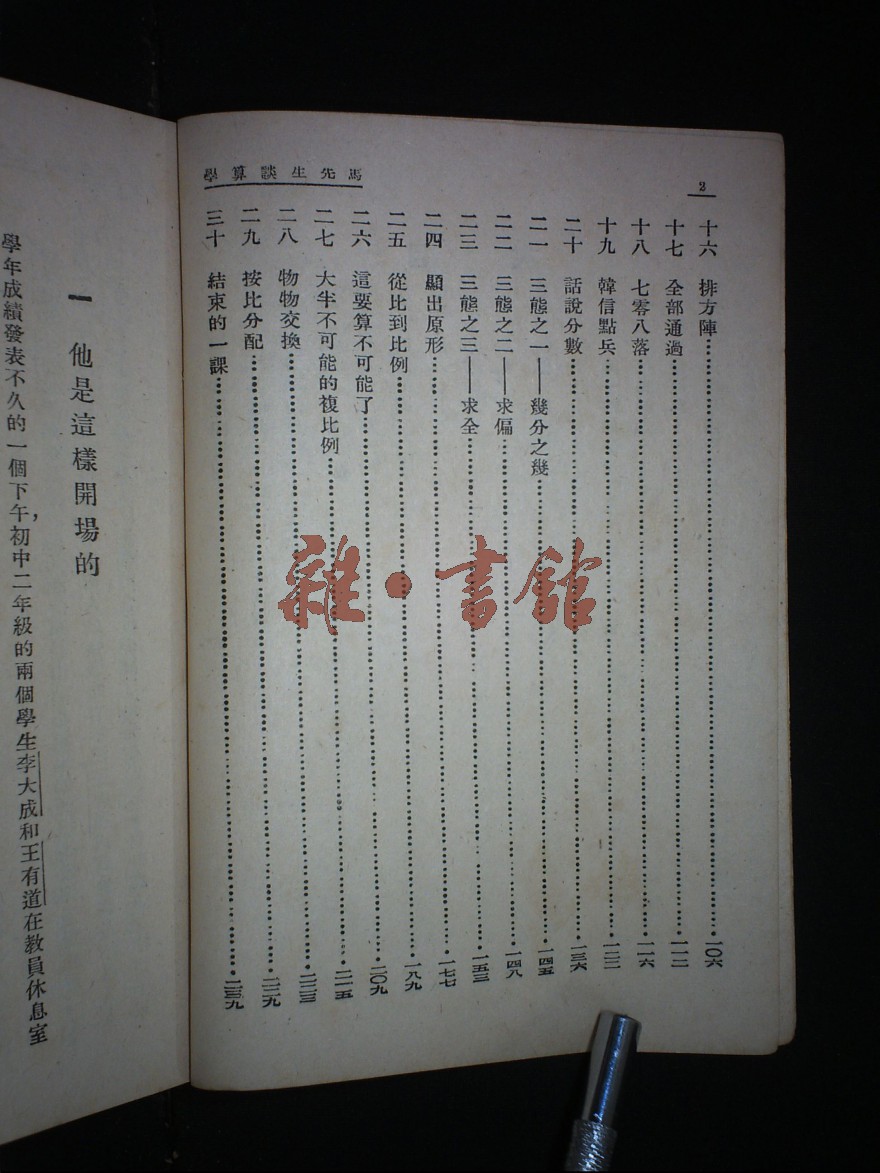 2
馬先生談算學
十六 排方陣 一〇六
十七 全部通過 一一二
十八 七零八落 一一六
十九 韓信點兵 一二二
二十 話說分數 一三六
二一 三態之一——幾分之幾 一四五
二二 三態之二——求偏 一四八
二三 三態之三——求全 一五三
二四 顯出原形 一七七
二五 從比到比例 一八九
二六 這要算不可能了 二〇九
二七 大半不可能的複比例 二一五
二八 物物交換 二二三
二九 按比分配 二二九
三十 結束的一課 二三九
一 他是這樣開場的
學年成績發表不久的一個下午,初中二年級的兩個學生李大成和王有道在教員休息室
雜·書館